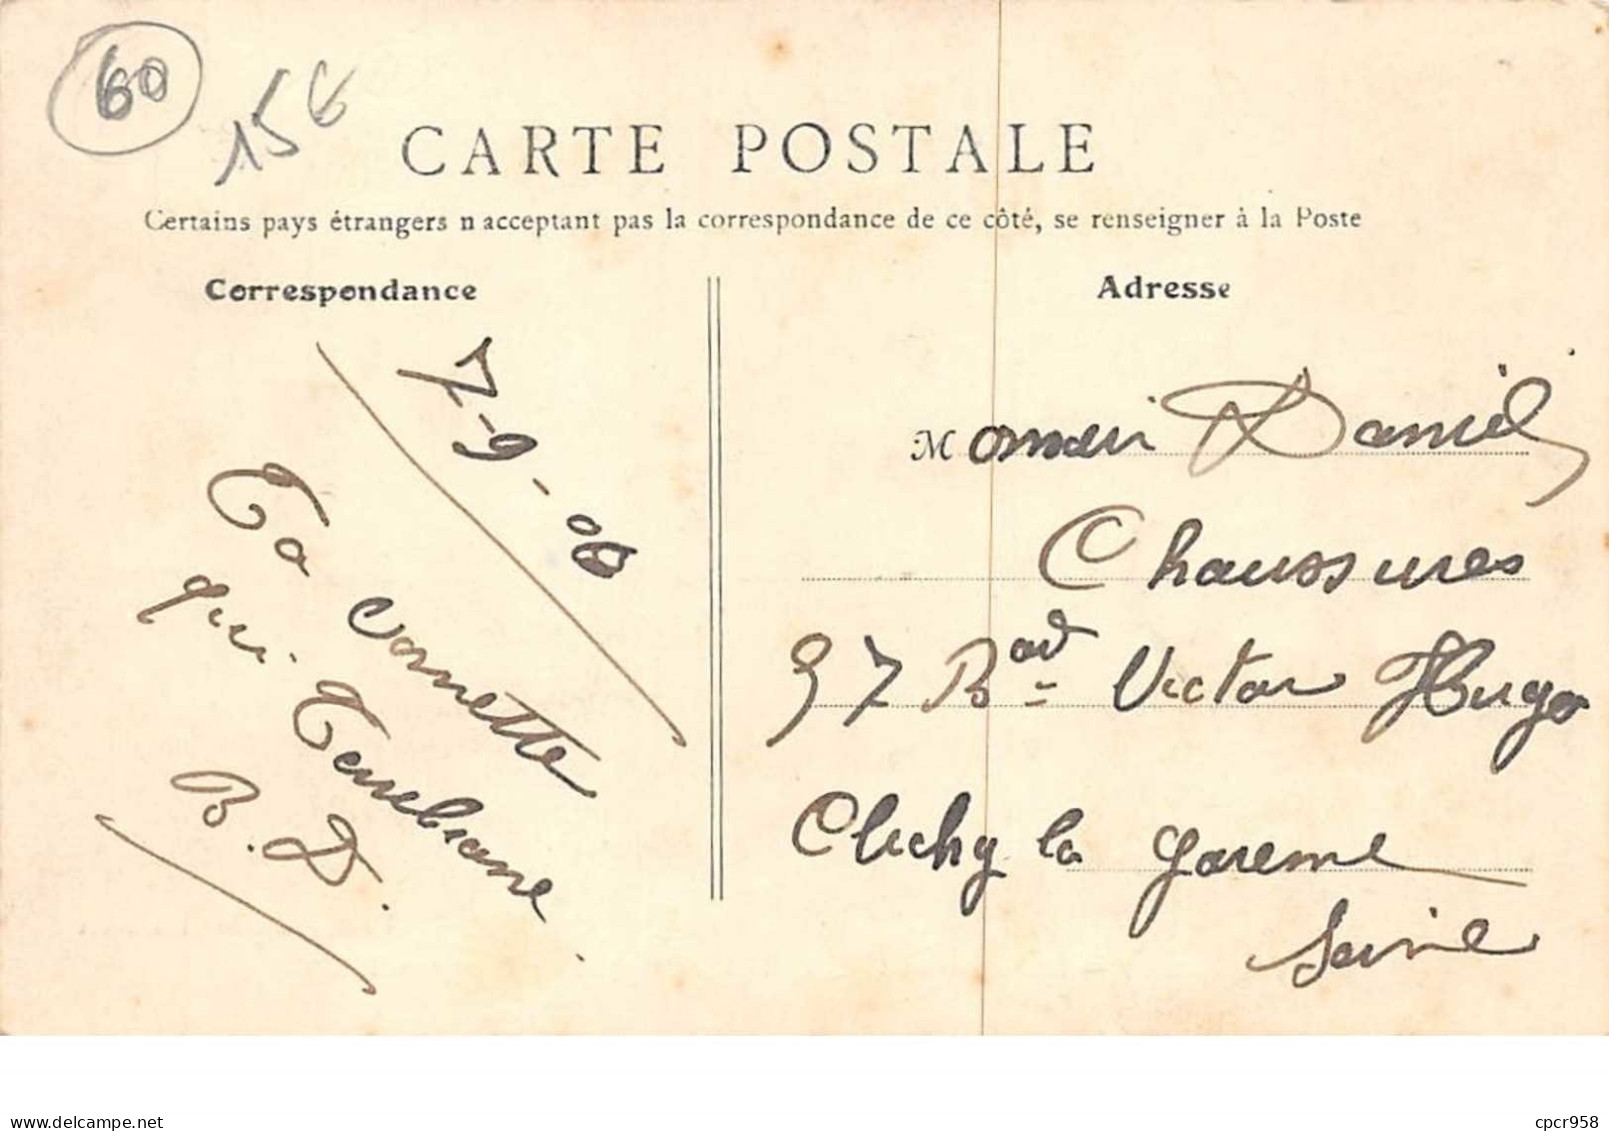 60
15€
CARTE POSTALE
Certains pays étrangers n'acceptant pas la correspondance de ce côté, se renseigner à la Poste
Correspondance
Adresse
7-9-06
Ta cornette
qui
B. D.
Monsieur Daniel
Chaussures
97 Bard Victor Hugo
Clichy la garenne
Seine
www.delcampe.net
cpcr958